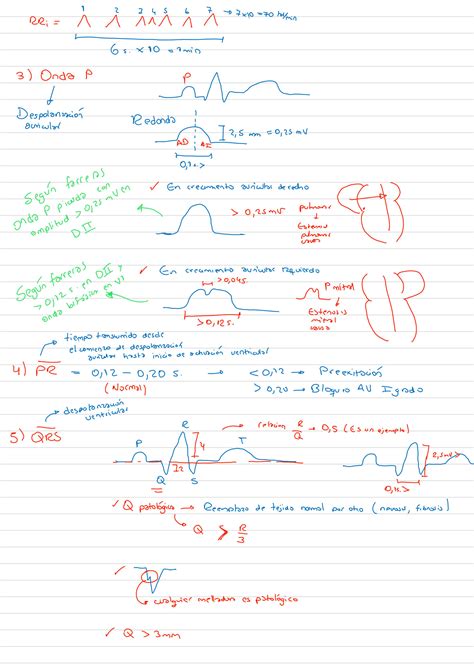 1 2 3 4 5 6 7 → 7x10 = 70 lat/min
RRi =
6 s. x 10 = 1 min
3) Onda P
P
Despolarización
auricular
Redonda
2,5 mm = 0,25 mV
AD AI
Según farreras
onda P picuda con
amplitud > 0,25 mV en
DII
✓ En crecimiento auricular derecho
> 0,25 mV
pulmonar
Estenosis
pulmonar
✓ En crecimiento auricular izquierdo
> 0,04 s.
Según farreras
> 0,12 s. en DII y
onda bifásica en V1
> 0,12 s.
P mitral
Estenosis
mitral
causa
tiempo transcurrido desde
el comienzo de despolarización
auricular hasta inicio de activación ventricular
4) PR = 0,12 - 0,20 s. → < 0,12 → Preexcitación
(Normal) > 0,20 → Bloqueo AV I grado
despolarización
ventricular
5) QRS
R
relación R/Q → 0,5 (Es un ejemplo)
P 4 T
2
Q S
2,5 mV >
✓ Q patológica → Reemplazo de tejido normal por otro (necrosis, fibrosis)
Q > R/3
✓
cualquier melladura es patológico
✓ Q > 3 mm